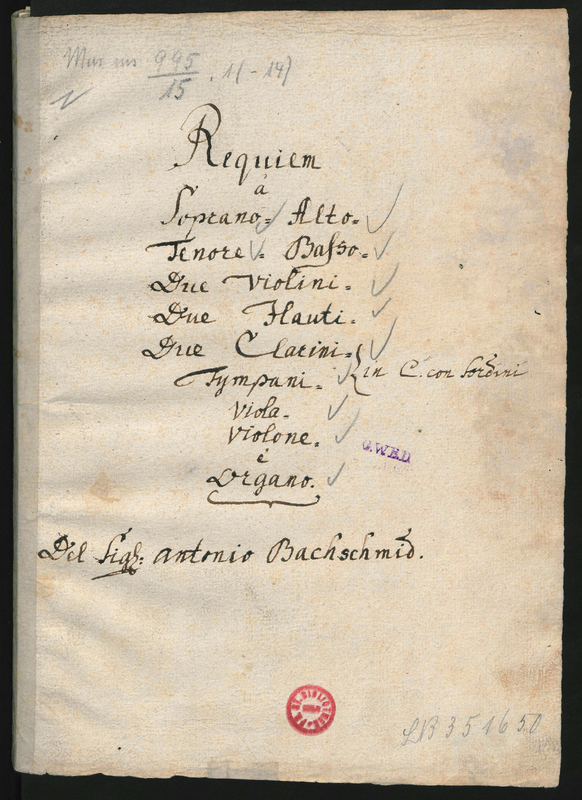 Mus ms 995/15 . 1(-14)
Requiem
à
Soprano= Alto=
Tenore= Basso=
Due Violini=
Due Flauti.
Due Clarini=
Tympani= in C. con Sordini
Viola=
Violone=
è
Organo.
Del Sigl: Antonio Bachschmid.
G.W.B.D.